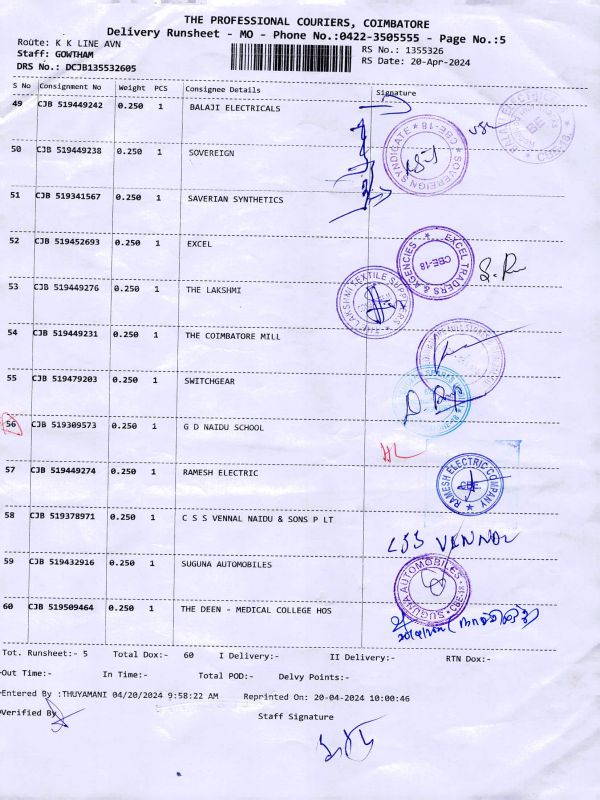 THE PROFESSIONAL COURIERS, COIMBATORE
Delivery Runsheet - MO - Phone No.:0422-3505555 - Page No.:5
Route: K K LINE AVN
RS No.: 1355326
Staff: GOWTHAM
RS Date: 20-Apr-2024
DRS No.: DCJB135532605
S No Consignment No Weight PCS Consignee Details Signature
49 CJB 519449242 0.250 1 BALAJI ELECTRICALS
50 CJB 519449238 0.250 1 SOVEREIGN
SOVEREIGN SYNDICATE ★ CBE-18 ★
51 CJB 519341567 0.250 1 SAVERIAN SYNTHETICS
52 CJB 519452693 0.250 1 EXCEL
EXCEL TRADERS & AGENCIES ★ CBE-18
53 CJB 519449276 0.250 1 THE LAKSHMI
LAKSHMI TEXTILE SUPPLIERS
54 CJB 519449231 0.250 1 THE COIMBATORE MILL
55 CJB 519479203 0.250 1 SWITCHGEAR
56 CJB 519309573 0.250 1 G D NAIDU SCHOOL
HL
57 CJB 519449274 0.250 1 RAMESH ELECTRIC
RAMESH ELECTRIC COMPANY ★ CBE
58 CJB 519378971 0.250 1 C S S VENNAL NAIDU & SONS P LT
CSS VENNAL
59 CJB 519432916 0.250 1 SUGUNA AUTOMOBILES
SUGUNA AUTOMOBILES
60 CJB 519509464 0.250 1 THE DEEN - MEDICAL COLLEGE HOS
Tot. Runsheet:- 5 Total Dox:- 60 I Delivery:- II Delivery:- RTN Dox:-
Out Time:- In Time:- Total POD:- Delvy Points:-
Entered By :THUYAMANI 04/20/2024 9:58:22 AM Reprinted On: 20-04-2024 10:00:46
Verified By
Staff Signature